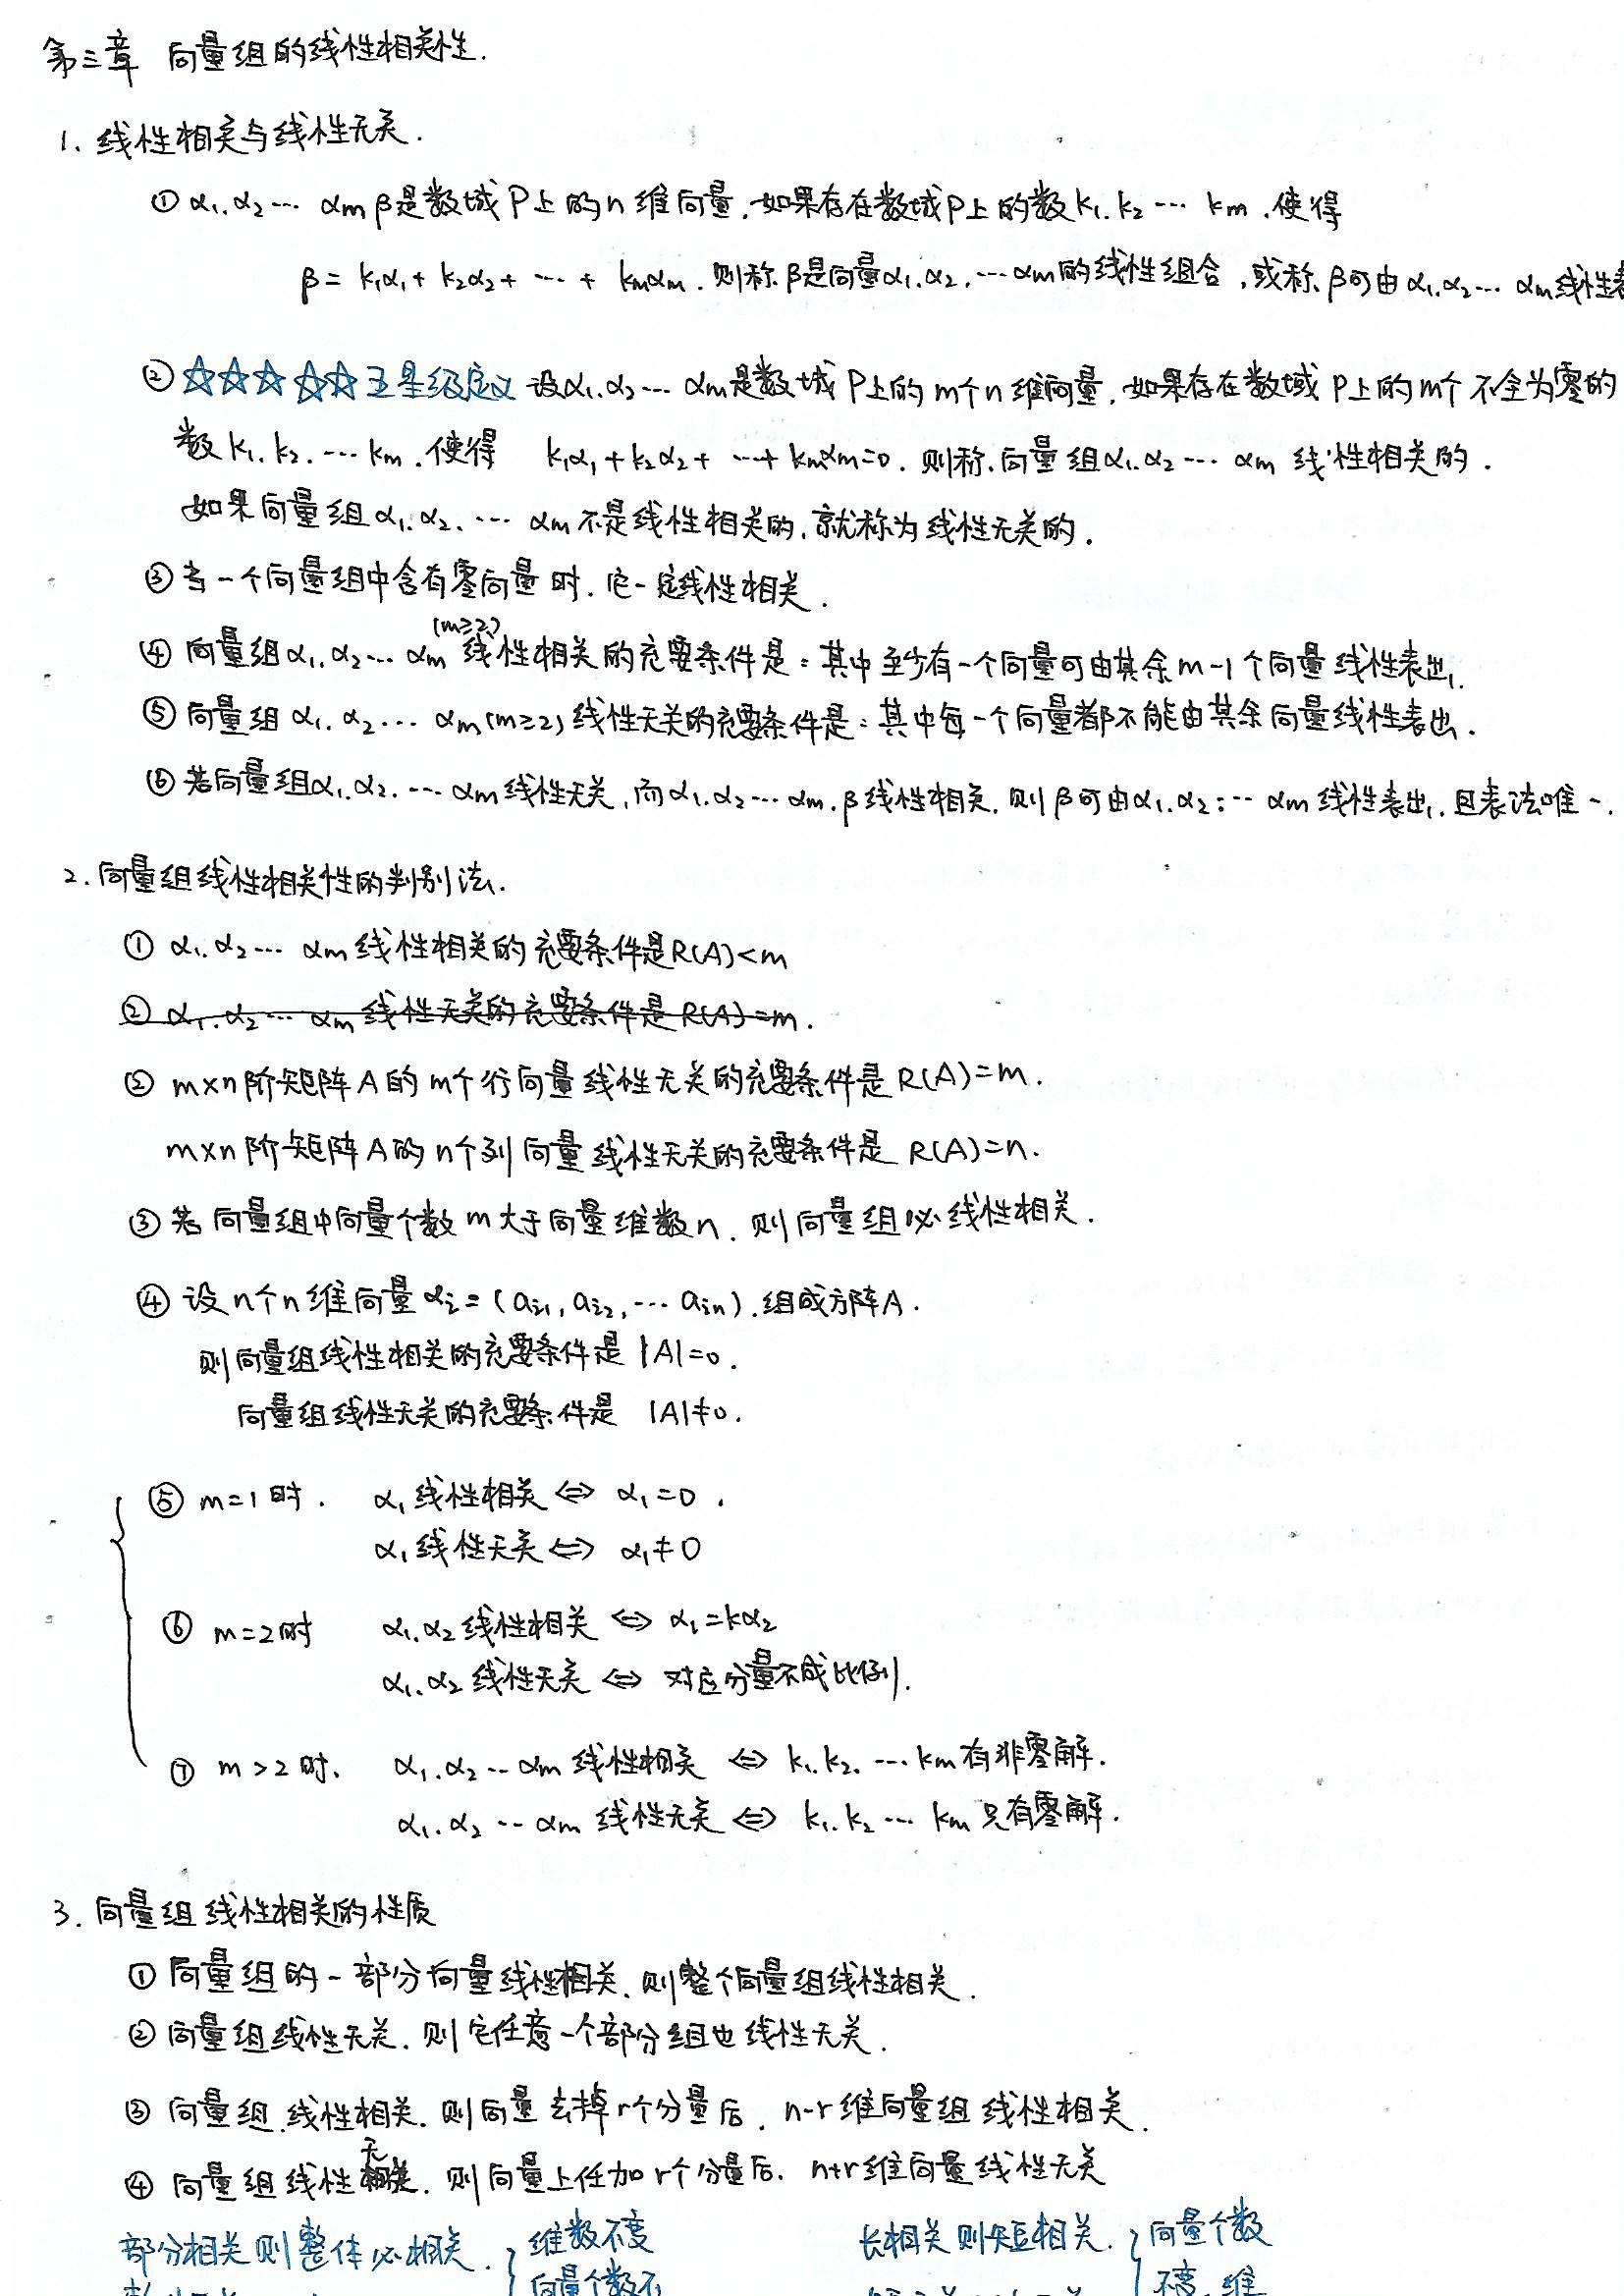 第三章 向量组的线性相关性.
1. 线性相关与线性无关.
① α₁.α₂… αm β是数域P上的n维向量.如果存在数域P上的数k₁.k₂… km.使得
β= k₁α₁+ k₂α₂+ … + kmαm.则称β是向量α₁.α₂.…αm的线性组合,或称β可由α₁.α₂… αm线性表
② ☆☆☆☆☆五星级定义 设α₁.α₂… αm是数域P上的m个n维向量,如果存在数域P上的m个不全为零的
数k₁.k₂.…km.使得 k₁α₁+k₂α₂+ …+ kmαm=0. 则称.向量组α₁.α₂… αm 线性相关的.
如果向量组α₁.α₂.… αm不是线性相关的,就称为线性无关的.
③ 当一个向量组中含有零向量时.它一定线性相关.
④ 向量组α₁.α₂… αm (m≥2) 线性相关的充要条件是:其中至少有一个向量可由其余m-1个向量线性表出.
⑤ 向量组 α₁.α₂… αm(m≥2)线性无关的充要条件是:其中每一个向量都不能由其余向量线性表出.
⑥ 若向量组α₁.α₂.… αm线性无关,而α₁.α₂… αm.β线性相关.则β可由α₁.α₂… αm线性表出.且表法唯一.
2.向量组线性相关性的判别法.
① α₁.α₂… αm线性相关的充要条件是R(A)<m
② α₁.α₂… αm 线性无关的充要条件是R(A)=m.
② m×n阶矩阵A的m个行向量线性无关的充要条件是R(A)=m.
m×n阶矩阵A的n个列向量线性无关的充要条件是 R(A)=n.
③ 若向量组中向量个数m大于向量维数n.则向量组必线性相关.
④ 设n个n维向量αi=(ai1,ai2,…ain).组成方阵A.
则向量组线性相关的充要条件是|A|=0.
向量组线性无关的充要条件是 |A|≠0.
⑤ m=1时. α₁线性相关⇔ α₁=0.
α₁线性无关⇔ α₁≠0
⑥ m=2时 α₁.α₂线性相关⇔ α₁=kα₂
α₁.α₂线性无关⇔ 对应分量不成比例.
⑦ m>2时. α₁.α₂…αm线性相关 ⇔ k₁.k₂.…km有非零解.
α₁.α₂…αm 线性无关⇔ k₁.k₂… km只有零解.
3.向量组线性相关的性质
① 向量组的一部分向量线性相关.则整个向量组线性相关.
② 向量组线性无关.则它任意一个部分组也线性无关.
③ 向量组.线性相关.则向量去掉r个分量后.n-r维向量组线性相关.
④ 向量组线性无关.则向量上任加r个分量后.n+r维向量线性无关
部分相关则整体必相关. } 维数不变 长相关则短相关. } 向量个数
向量个数不 不变.维